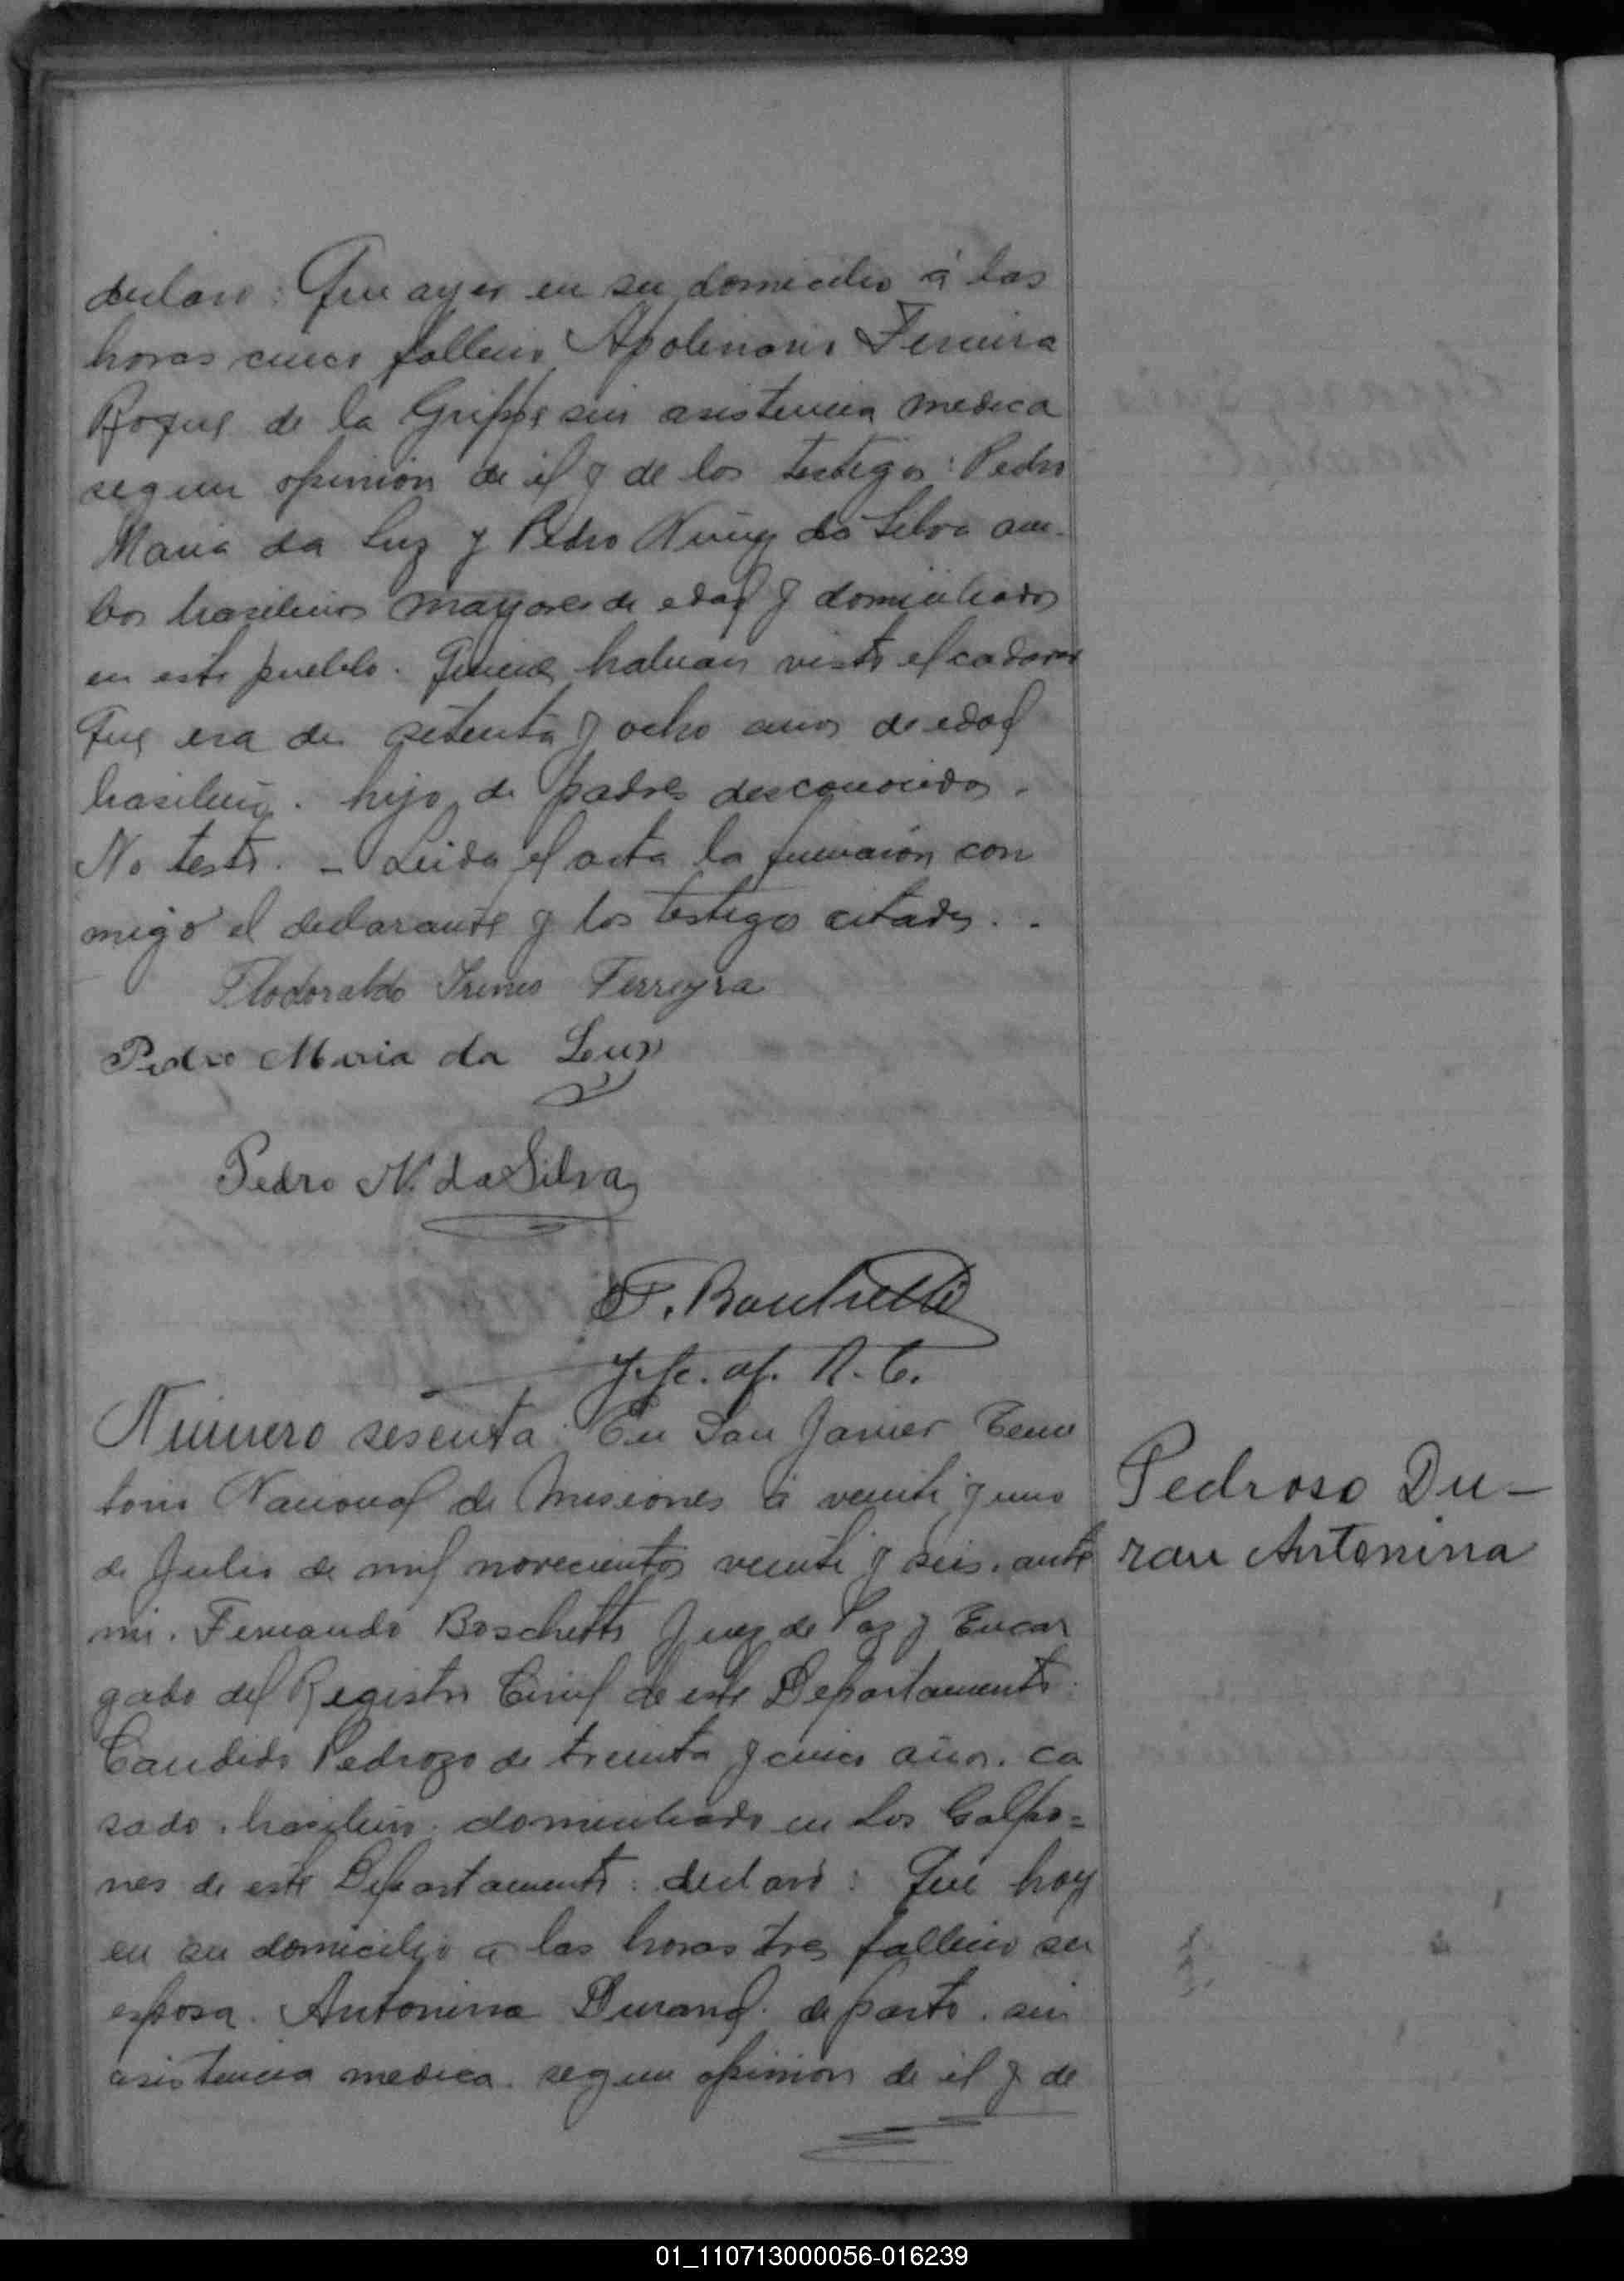 declaro: Que ayer en su domicilio á las
horas cinco fallecio Apolinario Ferreira
Roque de la Grippe sin asistencia medica
segun opinion de el y de los testigos: Pedro
Maria da Luz y Pedro Nuñez da Silva am-
bos brasileños mayores de edad y domiciliados
en este pueblo. Quienes habian visto el cadaver
Que era de setenta y ocho años de edad
brasileño. hijo de padres desconocidos.
No testó. - Leida el acta la firmaron con
migo el declarante y los testigos citados. -
Flodoraldo Irineo Ferreyra
Pedro Maria da Luz
Pedro N. da Silva
F. Boschetti
Número sesenta: En San Javier Terri
torio Nacional de Misiones á veinte y uno
de Julio de mil novecientos veinte y seis. ante
mi. Fernando Boschetti Juez de Paz y Encar
gado del Registro Civil de este Departamento.
Candido Pedrozo de treinta y cinco años. ca
sado. brasilero. domiciliado en Los Galpo=
nes de este Departamento: declaró: Que hoy
en su domicilio a las horas tres fallecio su
esposa. Antonina Durand. de parto. sin
asistencia medica. segun opinion de el y de
Pedroso Du-
ran Antonina
01_110713000056-016239